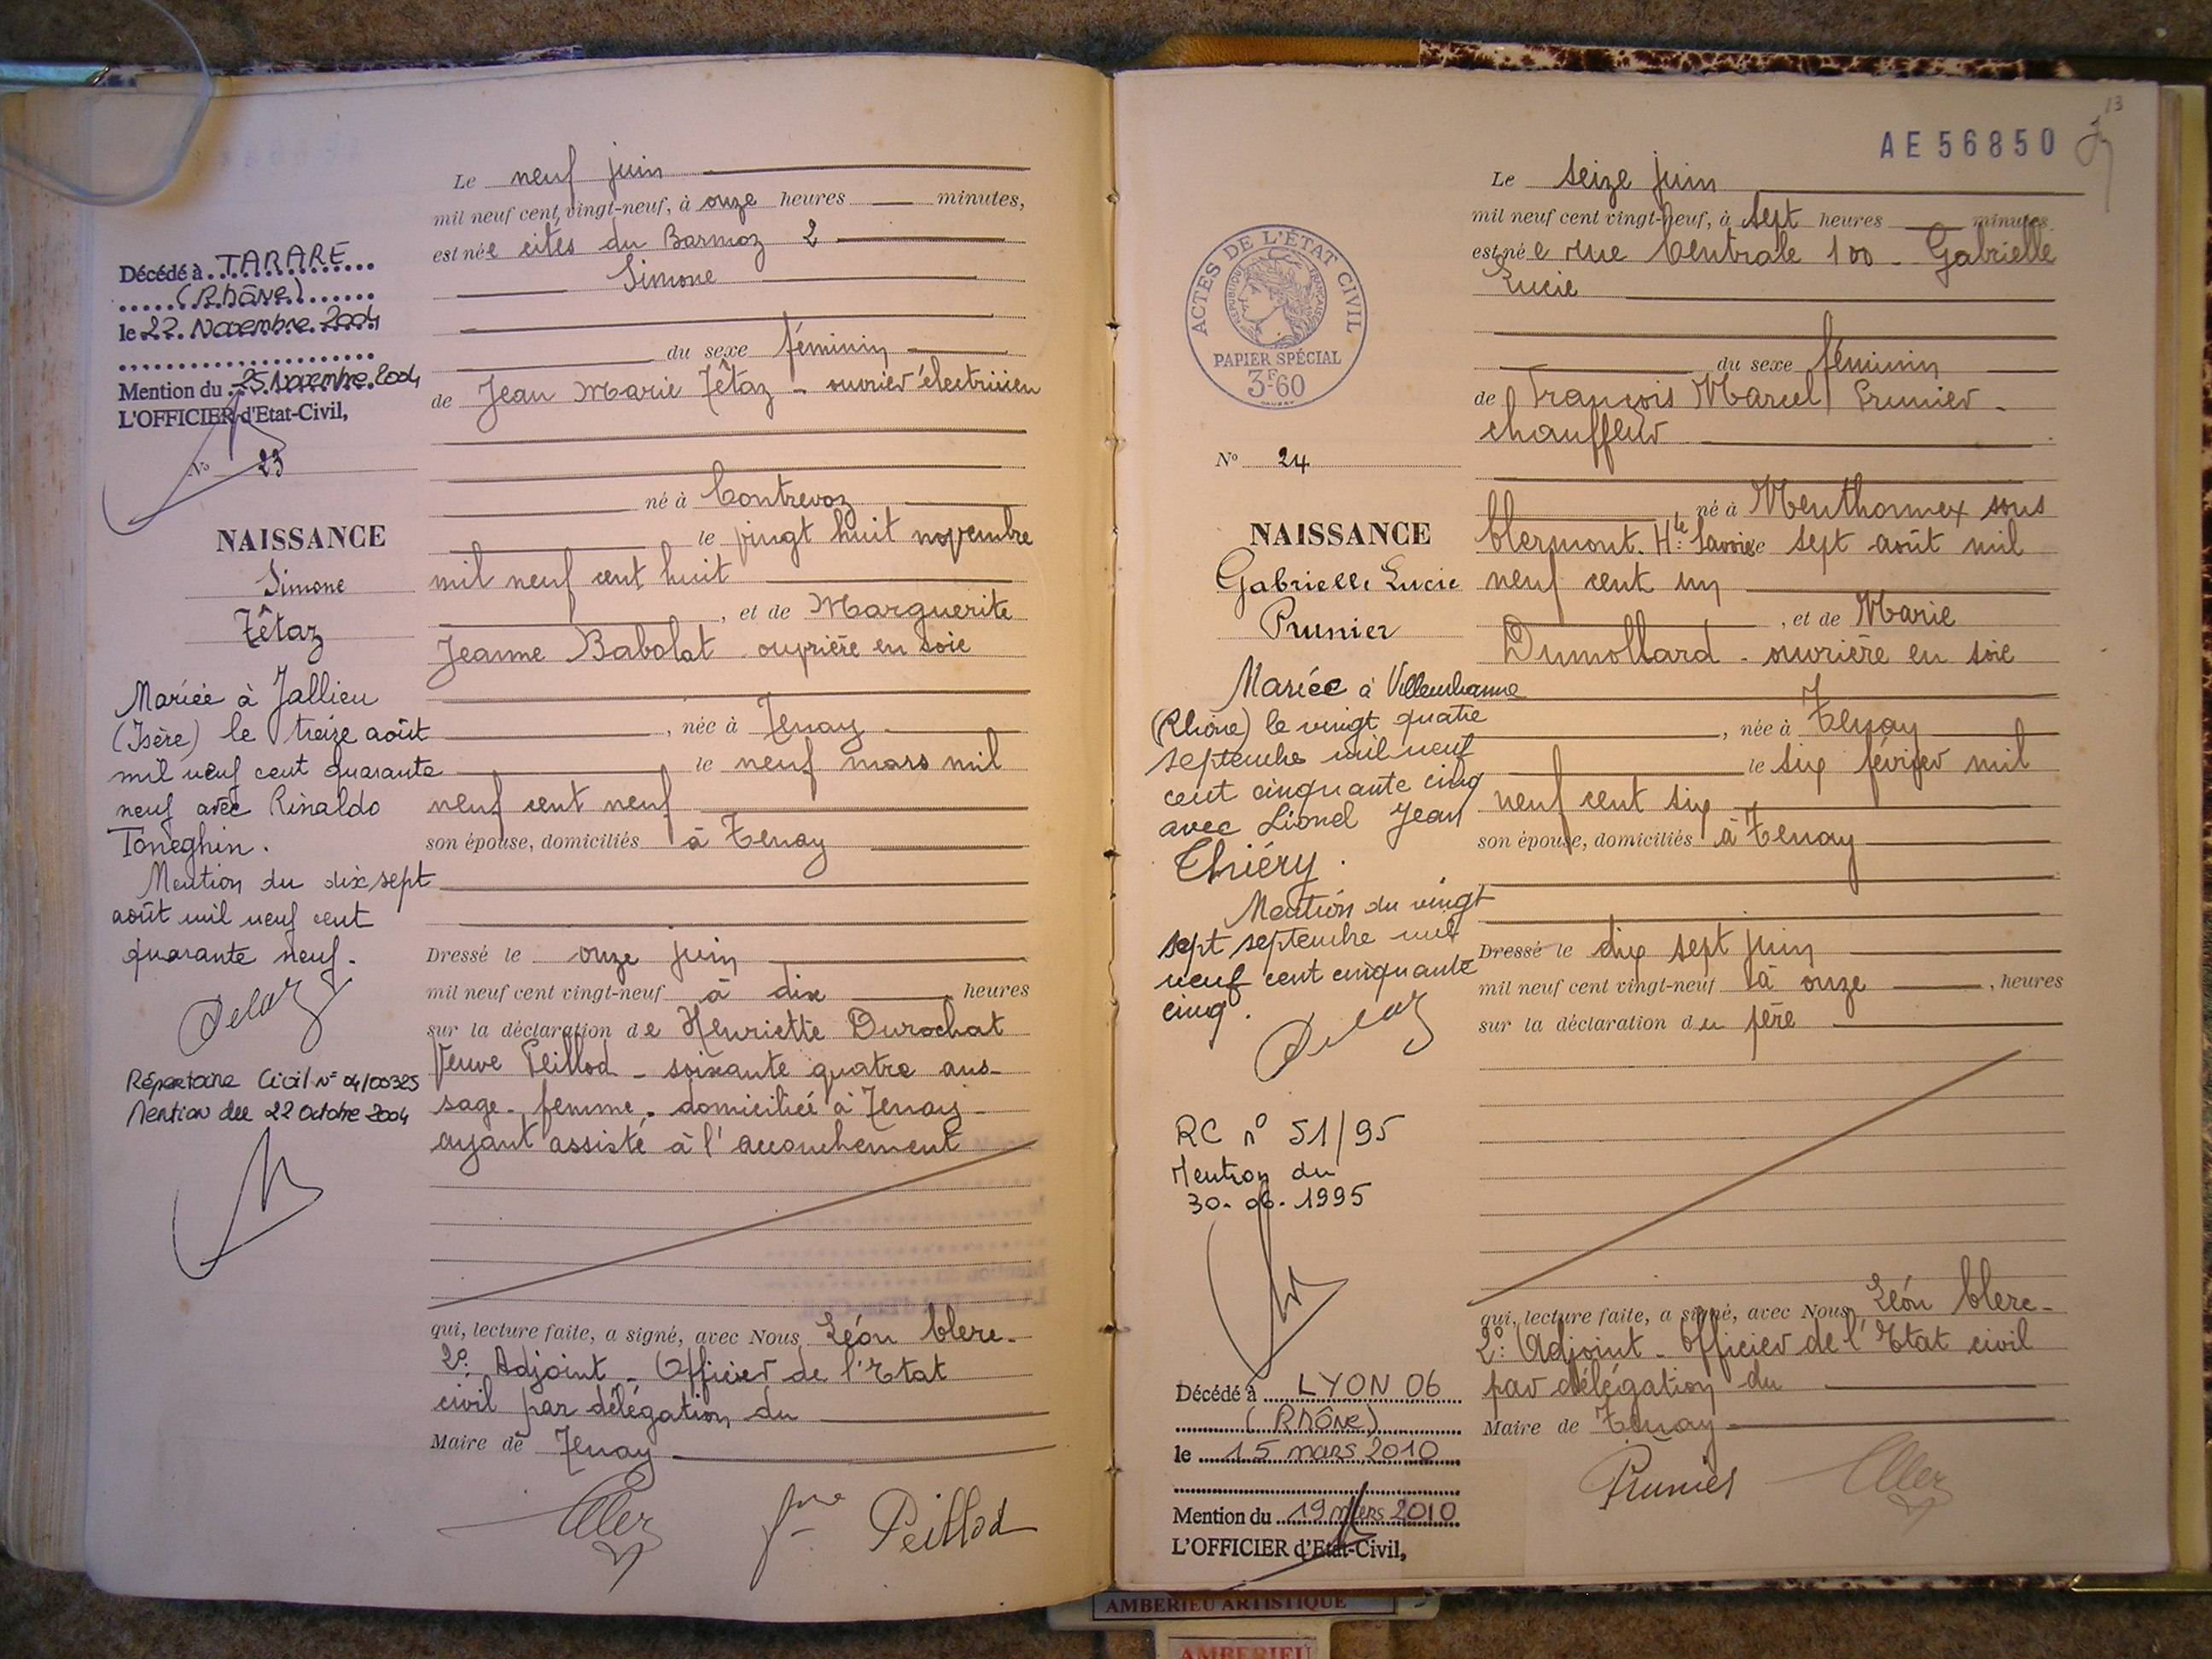 Le neuf juin
mil neuf cent vingt-neuf, à onze heures minutes,
est née cités du Barmoz 2
Simone
du sexe féminin
de Jean Marie Têtaz - ouvrier électricien
né à Contrevoz
le vingt huit novembre
mil neuf cent huit
, et de Marguerite
Jeanne Babolat ouvrière en soie
, née à Tenay
le neuf mars mil
neuf cent neuf
son épouse, domiciliés à Tenay
Dressé le onze juin
mil neuf cent vingt-neuf à dix heures
sur la déclaration de Henriette Durochat
Veuve Peillod - soixante quatre ans -
sage-femme - domiciliée à Tenay -
ayant assisté à l'accouchement
qui, lecture faite, a signé, avec Nous Léon Clerc -
2e Adjoint - Officier de l'Etat
civil par délégation du
Maire de Tenay
Peillod
Décédé à TARARE
(Rhône)
le 22 Novembre 2004
Mention du 25 Novembre 2004
L'OFFICIER d'Etat-Civil,
No 23
NAISSANCE
Simone
Têtaz
Mariée à Jallieu
(Isère) le treize août
mil neuf cent quarante
neuf avec Rinaldo
Toneghin.
Mention du dix sept
août mil neuf cent
quarante neuf.
Répertoire Civil N° 04/00325
Mention du 22 Octobre 2004
13
AE 56850
Le seize juin
mil neuf cent vingt-neuf, à sept heures minutes
est née rue Centrale 100 - Gabrielle
Lucie
du sexe féminin
de François Marcel Prunier -
chauffeur
né à Menthonnex sous
Clermont. Hte Savoie le sept août mil
neuf cent un
, et de Marie
Dumollard - ouvrière en soie
, née à Tenay
le six février mil
neuf cent six
son épouse, domiciliés à Tenay
Dressé le dix sept juin
mil neuf cent vingt-neuf à onze , heures
sur la déclaration du père
qui, lecture faite, a signé, avec Nous Léon Clerc -
2e Adjoint - Officier de l'Etat civil
par délégation du
Maire de Tenay
Prunier
ACTES DE L'ÉTAT CIVIL
RÉPUBLIQUE FRANÇAISE
PAPIER SPÉCIAL
3F60
No 24
NAISSANCE
Gabrielle Lucie
Prunier
Mariée à Villeurbanne
(Rhône) le vingt quatre
septembre mil neuf
cent cinquante cinq
avec Lionel Jean
Thiéry.
Mention du vingt
sept septembre mil
neuf cent cinquante
cinq.
RC n° 51/95
Mention du
30-06-1995
Décédé à LYON 06
(RHÔNE)
le 15 mars 2010
Mention du 19 mars 2010
L'OFFICIER d'Etat-Civil,
AMBERIEU ARTISTIQUE
AMBERIEU